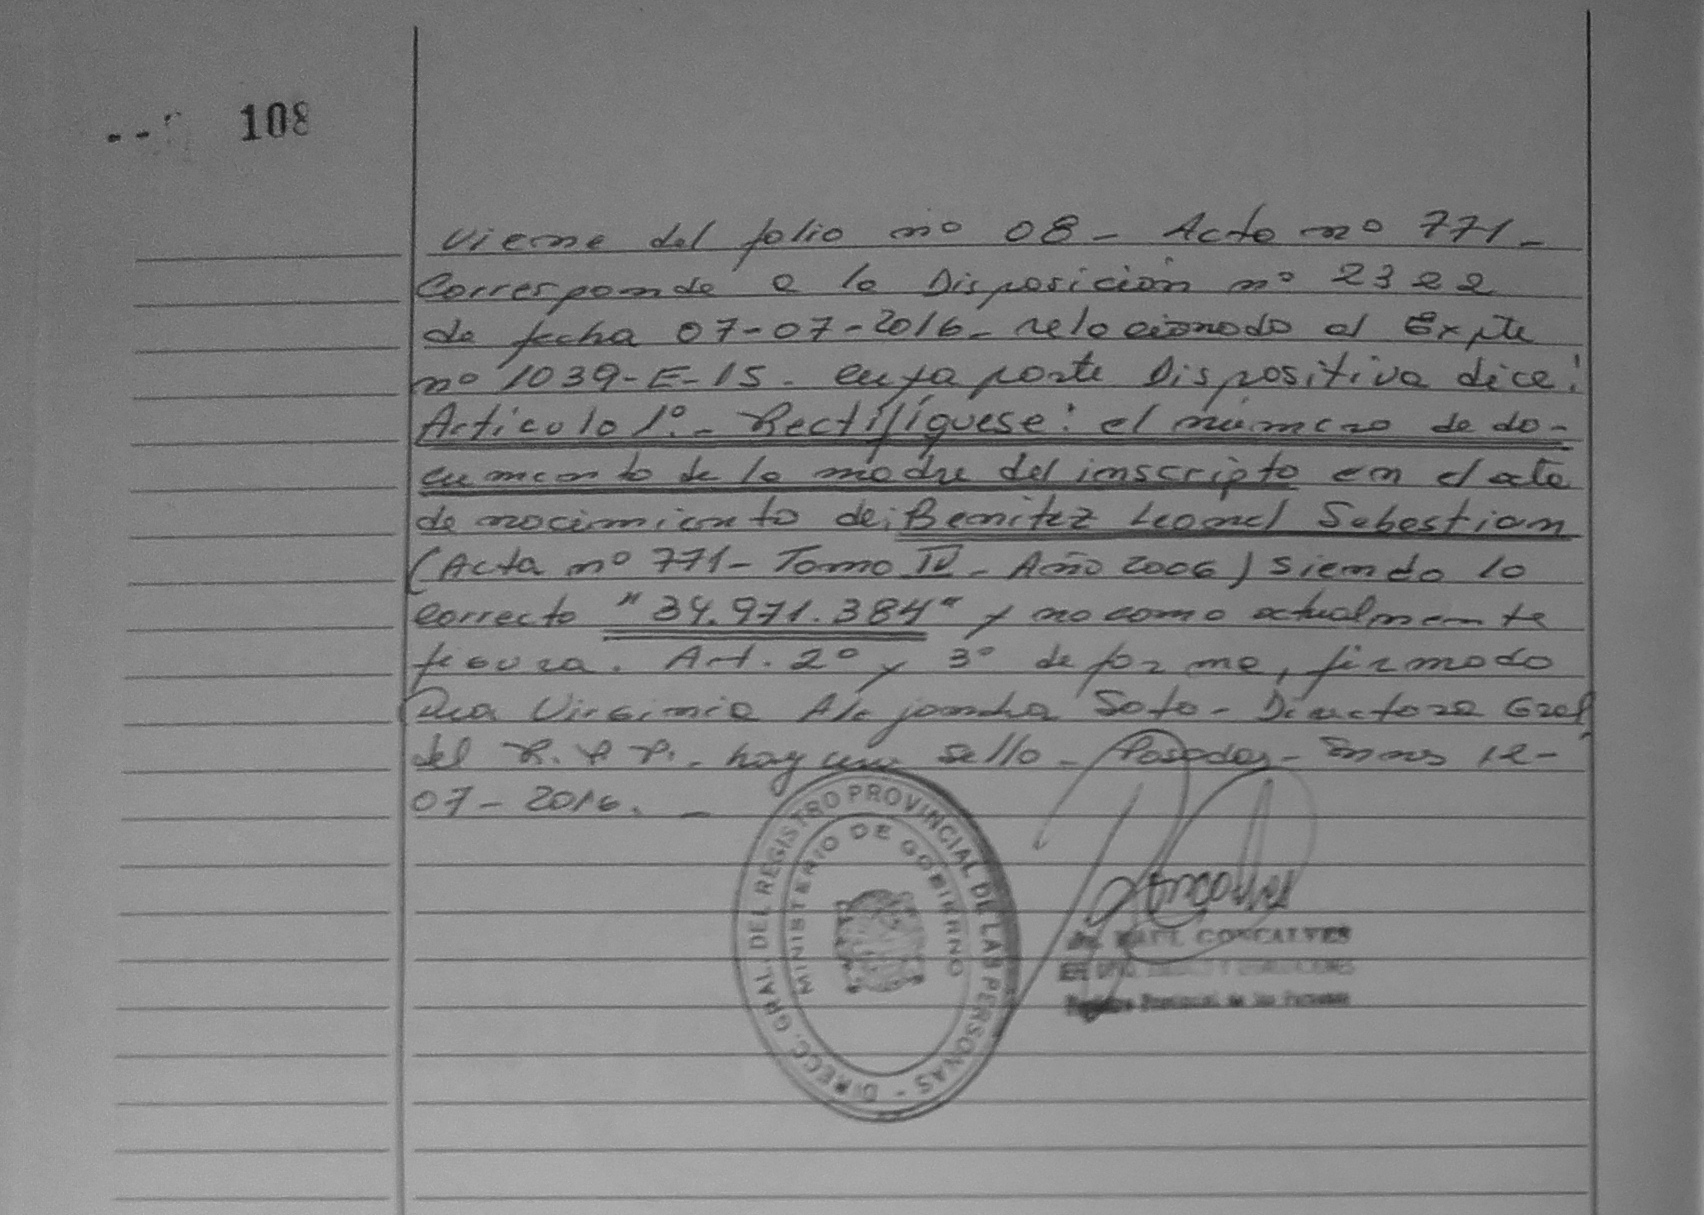 108
Viene del folio nº 08 - Acta nº 771 -
Corresponde a la Disposición nº 2322
de fecha 07-07-2016 - relacionado al Expte
nº 1039-E-15. cuya parte Dispositiva dice:
Artículo 1º - Rectifíquese: el número de do-
cumento de la madre del inscripto en el acta
de nacimiento de: Benitez Leonel Sebastian
(Acta nº 771 - Tomo IV - Año 2006) siendo lo
correcto "34.971.384" y no como actualmente
figura. Art. 2º y 3º de forma, firmado
Dra Virginia Alejandra Soto - Directora Gral
del R.P.P. - hay un sello - Posadas - Mnes 12-
07-2016. -
DIRECC. GRAL. DEL REGISTRO PROVINCIAL DE LAS PERSONAS -
MINISTERIO DE GOBIERNO
RAUL GONCALVES
Registro Provincial de las Personas